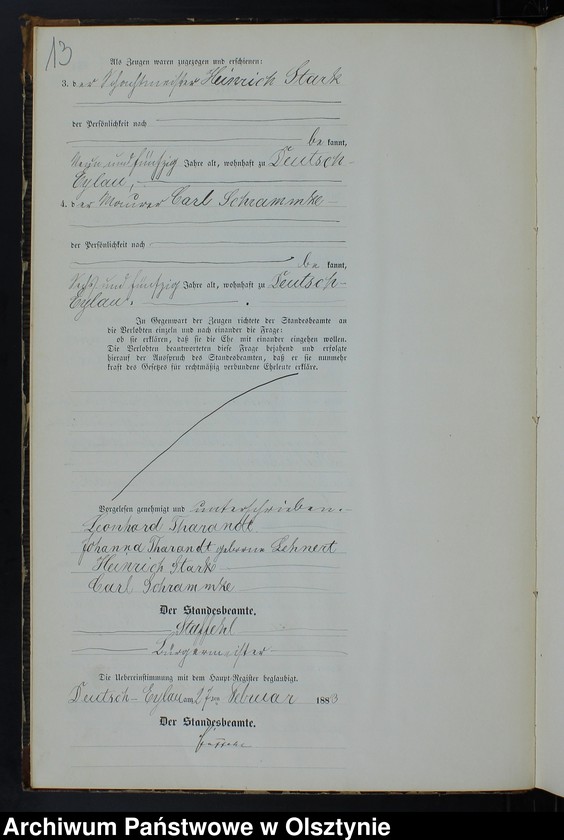 13
Als Zeugen waren zugezogen und erschienen:
3. der Schachtmeister Heinrich Stark
der Persönlichkeit nach
be kannt,
Neun und fünfzig Jahre alt, wohnhaft zu Deutsch-
Eylau,
4. der Maurer Carl Schrammke
der Persönlichkeit nach
be kannt,
Sechs und fünfzig Jahre alt, wohnhaft zu Deutsch-
Eylau.
In Gegenwart der Zeugen richtete der Standesbeamte an
die Verlobten einzeln und nach einander die Frage:
ob sie erklären, daß sie die Ehe mit einander eingehen wollen.
Die Verlobten beantworteten diese Frage bejahend und erfolgte
hierauf der Ausspruch des Standesbeamten, daß er sie nunmehr
kraft des Gesetzes für rechtmäßig verbundene Eheleute erkläre.
Vorgelesen genehmigt und unterschrieben.
Leonhard Tharandt
Johanna Tharandt geborene Lehnert
Heinrich Stark
Carl Schrammke
Der Standesbeamte.
Staffehl
Bürgermeister
Die Uebereinstimmung mit dem Haupt-Register beglaubigt.
Deutsch-Eylau am Februar 1883
Der Standesbeamte.
Archiwum Państwowe w Olsztynie